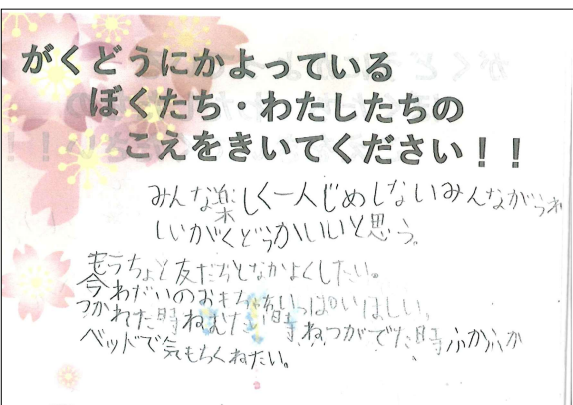 がくどうにかよっている
ぼくたち・わたしたちの
こえをきいてください！！
みんな楽しく一人じめしないみんながうれ
しいがくどうがいいと思う。
もうちょと友だちとなかよくしたい。
今わだいのおもちゃいっぱいほしい。
つかれた時ねむたい時ねつがでた時ふかふか
ベッドで気もちくねたい。